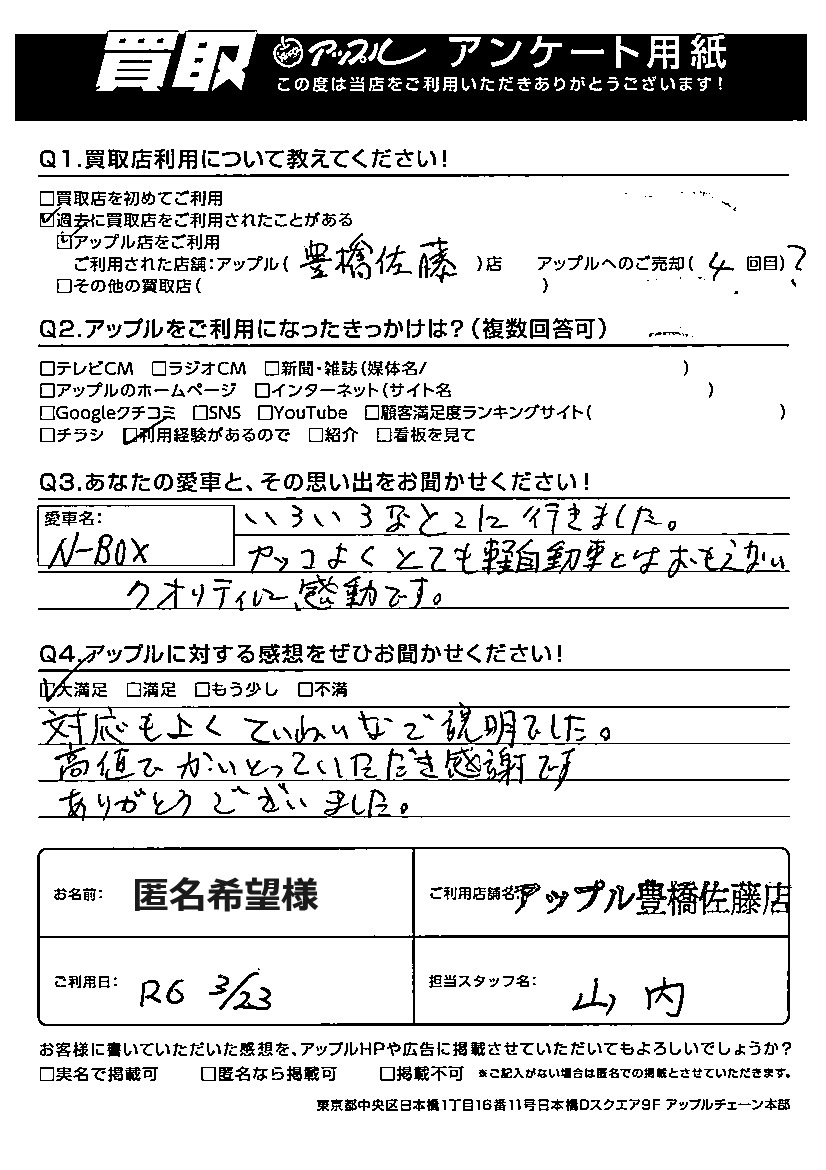 買取 アップル アンケート用紙
この度は当店をご利用いただきありがとうございます!
Q1.買取店利用について教えてください!
□買取店を初めてご利用
☑過去に買取店をご利用されたことがある
☑アップル店をご利用
ご利用された店舗:アップル(豊橋佐藤)店 アップルへのご売却(4回目)?
□その他の買取店( )
Q2.アップルをご利用になったきっかけは?(複数回答可)
□テレビCM □ラジオCM □新聞・雑誌(媒体名/ )
□アップルのホームページ □インターネット(サイト名 )
□Googleクチコミ □SNS □YouTube □顧客満足度ランキングサイト( )
□チラシ ☑利用経験があるので □紹介 □看板を見て
Q3.あなたの愛車と、その思い出をお聞かせください!
愛車名: N-BOX
いろいろなとこに行きました。
カッコよくとても軽自動車とはおもえない
クオリティに感動です。
Q4.アップルに対する感想をぜひお聞かせください!
☑大満足 □満足 □もう少し □不満
対応もよくていねいなで説明でした。
高値でかいとっていただき感謝です
ありがとうございました。
お名前: 匿名希望様 ご利用店舗名:アップル豊橋佐藤店
ご利用日: R6 3/23 担当スタッフ名: 山内
お客様に書いていただいた感想を、アップルHPや広告に掲載させていただいてもよろしいでしょうか?
□実名で掲載可 □匿名なら掲載可 □掲載不可 ※ご記入がない場合は匿名での掲載とさせていただきます。
東京都中央区日本橋1丁目16番11号日本橋Dスクエア9F アップルチェーン本部